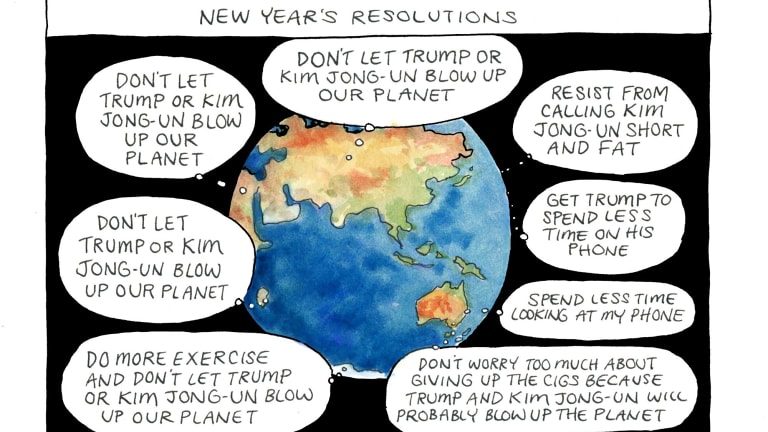 NEW YEAR'S RESOLUTIONS
DON'T LET TRUMP OR
KIM JONG-UN BLOW UP
OUR PLANET
DON'T LET
TRUMP OR KIM
JONG-UN BLOW
UP OUR
PLANET
RESIST FROM
CALLING KIM
JONG-UN SHORT
AND FAT
DON'T LET
TRUMP OR KIM
JONG-UN BLOW
UP OUR PLANET
GET TRUMP TO
SPEND LESS
TIME ON HIS
PHONE
SPEND LESS TIME
LOOKING AT MY PHONE
DO MORE EXERCISE
AND DON'T LET TRUMP
OR KIM JONG-UN BLOW
UP OUR PLANET
DON'T WORRY TOO MUCH ABOUT
GIVING UP THE CIGS BECAUSE
TRUMP AND KIM JONG-UN WILL
PROBABLY BLOW UP THE PLANET